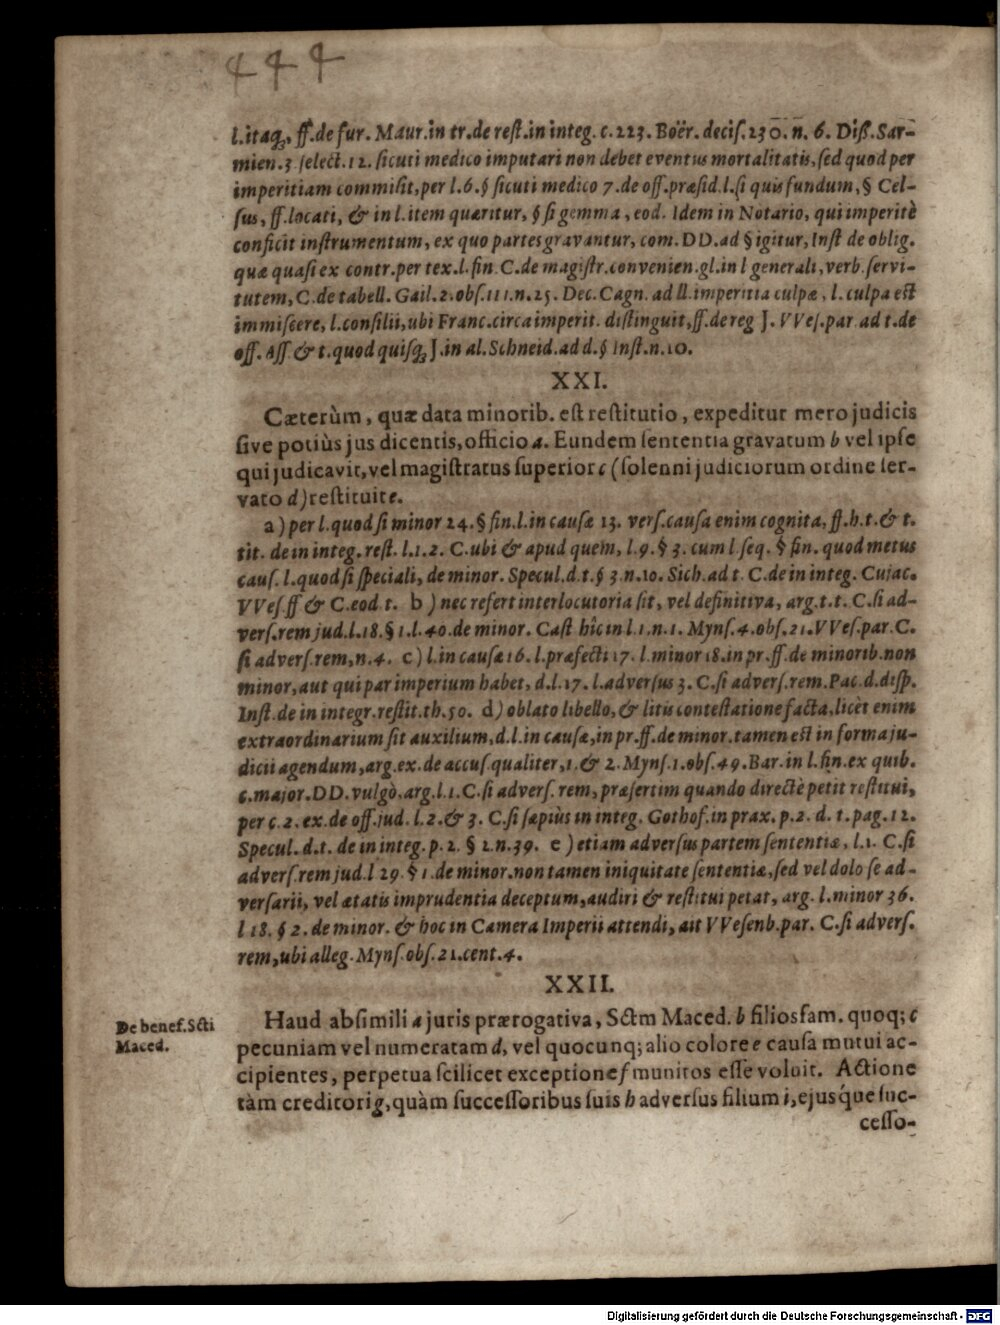 444
l.itaq;, ff.de fur. Maur.in tr.de rest.in integ. c.223. Boër. decis.230. n. 6. Diß.Sar-
mien.3 select.12. sicuti medico imputari non debet eventus mortalitatis, sed quod per
imperitiam commisit, per l.6.§ sicuti medico 7.de off.præsid.l.si quis fundum, § Cel-
sus, ff.locati, & in l.item quæritur, § si gemma, eod. Idem in Notario, qui imperitè
conficit instrumentum, ex quo partes gravantur, com. DD.ad § igitur, Inst de oblig.
quæ quasi ex contr.per tex.l.fin C.de magistr.convenien.gl.in l generali, verb.servi-
tutem, C.de tabell. Gail.2.obs.111.n.25. Dec.Cagn. ad ll.imperitia culpæ, l. culpa est
immiscere, l.consilii, ubi Franc.circa imperit. distinguit, ff.de reg J. VVes.par ad t.de
off. Ass & t.quod quisq; J.in al.Schneid.ad d.§ Inst.n.10.
XXI.
Cæterùm, quæ data minorib. est restitutio, expeditur mero judicis
sive potiùs jus dicentis, officio a. Eundem sententia gravatum b vel ipse
qui judicavit, vel magistratus superior c (solenni judiciorum ordine ser-
vato d) restituit e.
a) per l.quod si minor 24.§ fin.l.in causæ 13. vers.causa enim cognita, ff.h.t.& t.
tit. de in integ. rest. l.1.2. C.ubi & apud quem, l.9.§ 3. cum l.seq. § fin. quod metus
caus. l.quod si speciali, de minor. Specul.d.t.§ 3.n.10. Sich.ad t. C.de in integ. Cujac.
VVes.ff & C.eod t. b) nec refert interlocutoria sit, vel definitiva, arg.t.t. C.si ad-
vers.rem jud.l.18.§ 1.l.40.de minor. Cast hîc in l.1.n.1. Myns.4.obs.21.VVes.par.C.
si advers.rem, n.4. c) l.in causæ 16. l.præfecti 17. l.minor 18.in pr.ff.de minorib.non
minor, aut qui par imperium habet, d.l.17. l.adversus 3. C.si advers.rem.Pac.d.disp.
Inst.de in integr.restit.th.50. d) oblato libello, & litis contestatione facta, licèt enim
extraordinarium sit auxilium, d.l.in causæ, in pr.ff.de minor.tamen est in forma ju-
dicii agendum, arg.ex.de accus.qualiter, 1.& 2. Myns.1.obs.49.Bar.in l.fin.ex quib.
c.major.DD.vulgò.arg.l.1.C.si advers. rem, præsertim quando directè petit restitui,
per c.2. ex.de off.jud. l.2.& 3. C.si sæpiùs in integ. Gothof.in prax. p.2. d. t.pag.12.
Specul.d.t. de in integ.p. 2. § 2.n.39. e) etiam adversus partem sententiæ, l.1. C.si
advers.rem jud.l 29.§ 1.de minor.non tamen iniquitate sententiæ, sed vel dolo se ad-
versarii, vel ætatis imprudentia deceptum, audiri & restitui petat, arg. l.minor 36.
l 18. § 2. de minor. & hoc in Camera Imperii attendi, ait VVesenb.par. C.si advers.
rem, ubi alleg. Myns.obs.21.cent.4.
XXII.
De benef.Scti
Maced.
Haud absimili a juris prærogativa, Sctm Maced. b filiosfam. quoq; c
pecuniam vel numeratam d, vel quocunq; alio colore e causa mutui ac-
cipientes, perpetua scilicet exceptione f munitos esse voluit. Actione
tàm creditori g, quàm successoribus suis h adversus filium i, ejusq́ue suc-
cesso-
Digitalisierung gefördert durch die Deutsche Forschungsgemeinschaft - DFG